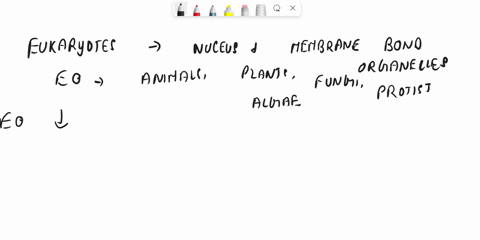 EUKARYOTES → NUCEUS & MEMBRANE BOND
ORGANELLES
EG → ANIMALS, PLANTS, FUNGI, PROTIST
ALGAE
EG ↓